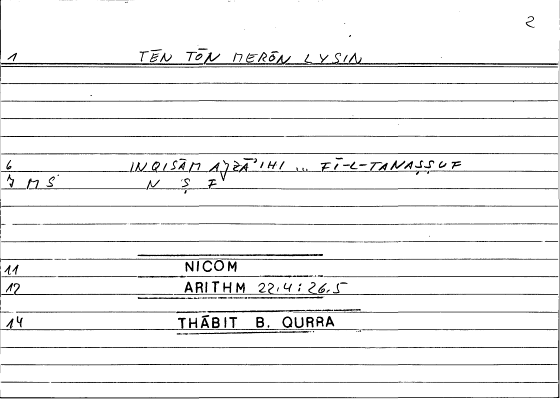 2
1 TĒN TŌN MERŌN LYSIN
6 INQISĀM AJZĀʾIHI ... FĪ-L-TANAṢṢUF
7 MS N Ṣ F
11 NICOM
12 ARITHM 22.4 : 26.5
14 THĀBIT B. QURRA